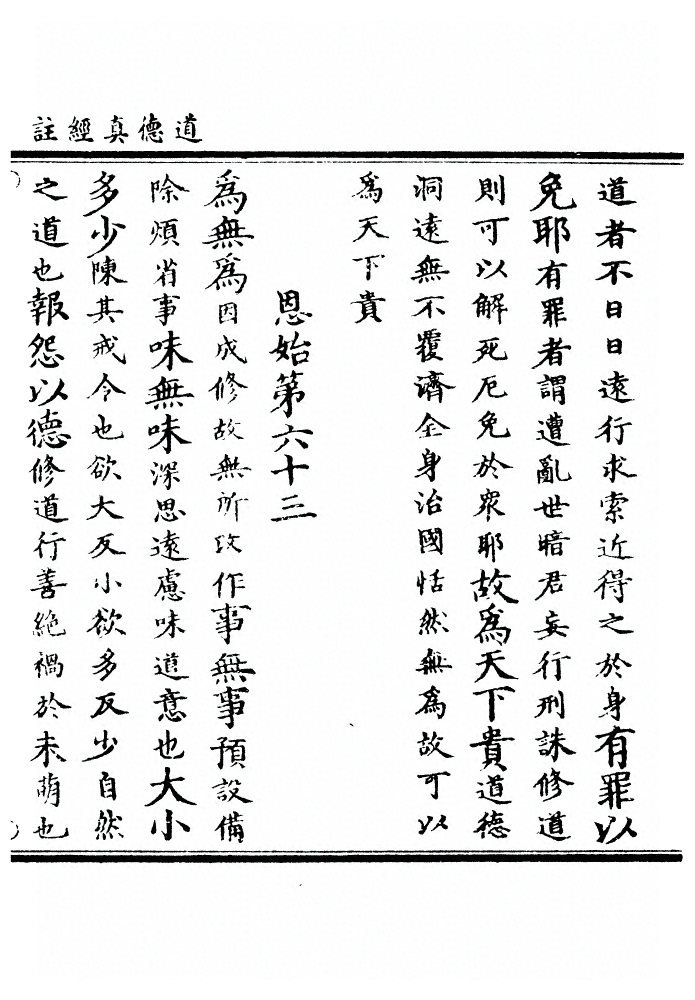 道德真經註
道者不日日遠行求索近得之於身有罪以
免耶有罪者謂遭亂世暗君妄行刑誅修道
則可以解死厄免於眾耶故爲天下貴道德
洞遠無不覆濟全身治國恬然無爲故可以
爲天下貴
恩始第六十三
爲無爲因成修故無所改作事無事預設備
除煩省事味無味深思遠慮味道意也大小
多少陳其戒令也欲大反小欲多反少自然
之道也報怨以德修道行善絶禍於未萌也